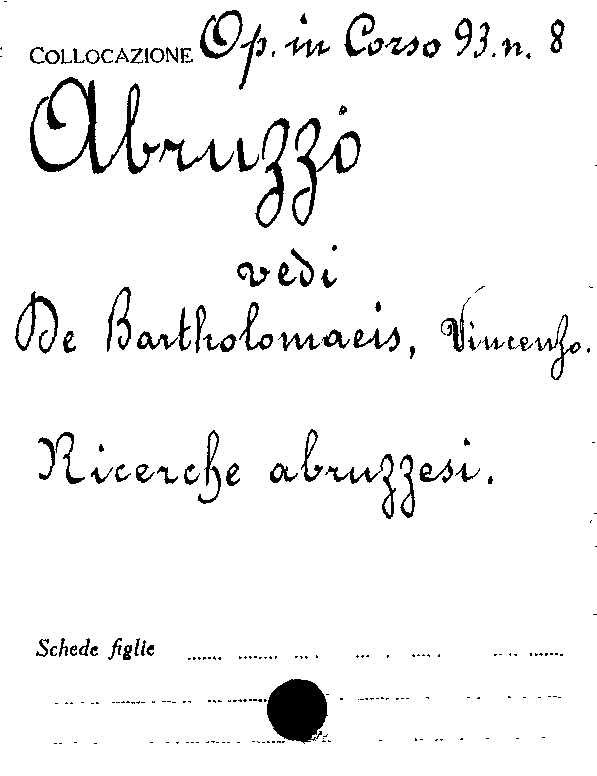 COLLOCAZIONE Op. in Corso 93. n. 8
Abruzzo
vedi
De Bartholomaeis, Vincenzo.
Ricerche abruzzesi.
Schede figlie